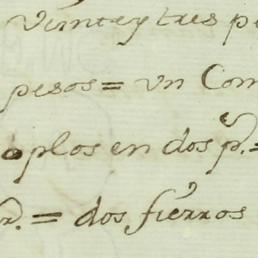 veinte y tres p
pesos = un Com
oplos en dos p.s =
r. = dos fierros